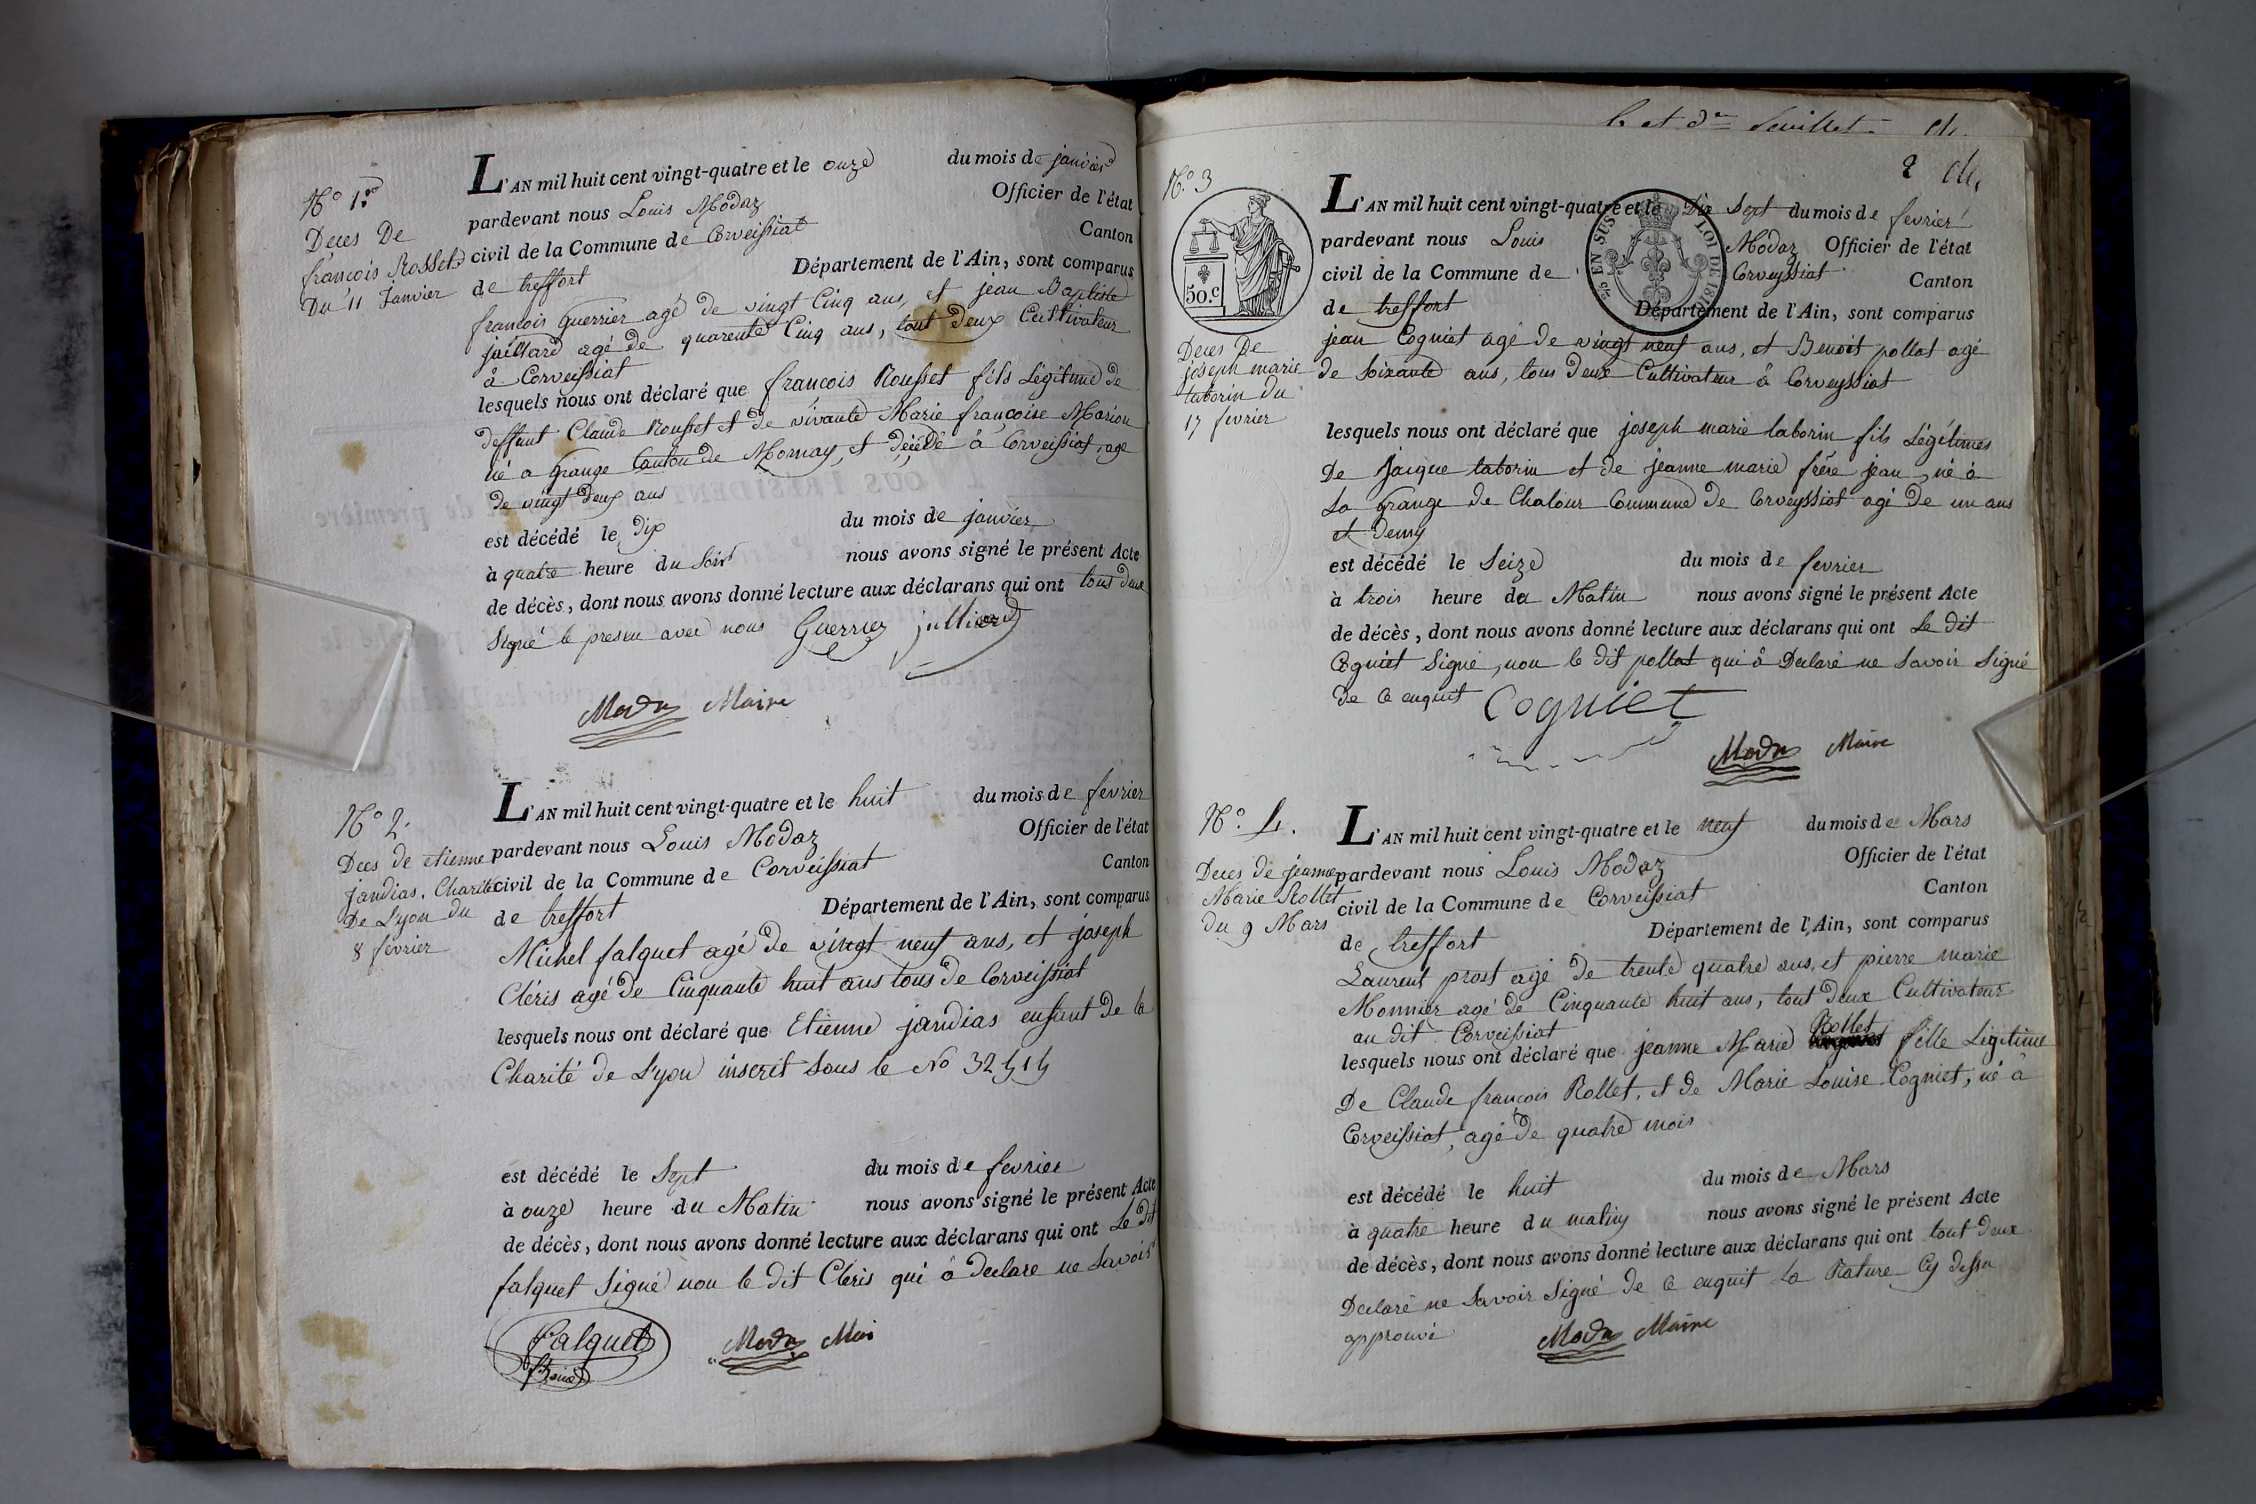 N.º 1.er
Deces De
françois Rosset
Du 11 Janvier
L'AN mil huit cent vingt-quatre et le onze du mois de janvier
pardevant nous Louis Modaz Officier de l'état
civil de la Commune de Corveissiat Canton
de treffort Département de l'Ain, sont comparus
françois Guerrier agé de vingt Cinq ans, et jean Baptiste
juillard agé de quarente Cinq ans, tout deux Cultivateur
à Corveissiat
lesquels nous ont déclaré que françois Rousset fils Légitime de
deffunt Claude Rousset et de vivante Marie françoise Marion
né a Grange Canton de Mornay, et décédé à Corveissiat, age
de vingt deux ans
est décédé le dix du mois de janvier
à quatre heure du soir nous avons signé le présent Acte
de décès, dont nous avons donné lecture aux déclarans qui ont tous deux
signé le presen avec nous Guerrier julliard
Modaz Maire
N.º 2.
Dces de etienne
jandias, Charité
De Lyon du
8 février
L'AN mil huit cent vingt-quatre et le huit du mois de fevrier
pardevant nous Louis Modaz Officier de l'état
civil de la Commune de Corveissiat Canton
de treffort Département de l'Ain, sont comparus
Michel falquet agé de vingt neuf ans, et joseph
Cléris agé de Cinquante huit ans tous de Corveissiat
lesquels nous ont déclaré que Etienne jandias enfant de la
Charité de Lyon inscrit sous le No 32414
est décédé le Sept du mois de fevrier
à onze heure du Matin nous avons signé le présent Acte
de décès, dont nous avons donné lecture aux déclarans qui ont Le dit
falquet Signé non le dit Cléris qui à declare ne savoir
Falquet
Modaz Mair
2
N.º 3
50.c
EN SUS
LOI DE 1816
Deces De
joseph marie
taborin du
17 fevrier
L'AN mil huit cent vingt-quatre et le Dix Sept du mois de fevrier
pardevant nous Louis Modaz Officier de l'état
civil de la Commune de Corveyssiat Canton
de treffort Département de l'Ain, sont comparus
jean Cogniet agé de vingt neuf ans, et Benoit pollat agé
de soixante ans, tous deux Cultivateur à Corveyssiat
lesquels nous ont déclaré que joseph marie taborin fils Légétimes
De jacque taborin et de jeanne marie frére jean, né à
La Grange de Chalour Commune de Corveyssiat agé de un ans
et demy
est décédé le Seize du mois de fevrier
à trois heure du Matin nous avons signé le présent Acte
de décès, dont nous avons donné lecture aux déclarans qui ont Le dit
Cogniet Signé, non le dit pollat qui à Declaré ne savoir Signé
de ce enquit Cogniet
Modaz Maire
N.º 4.
Deces de jeanne
Marie Rollet
Du 9 Mars
L'AN mil huit cent vingt-quatre et le neuf du mois de Mars
pardevant nous Louis Modaz Officier de l'état
civil de la Commune de Corveissiat Canton
de treffort Département de l'Ain, sont comparus
Laurent prost agé de trente quatre ans, et pierre marie
Monnier agé de Cinquante huit ans, tout deux Cultivateur
au dit Corveissiat
lesquels nous ont déclaré que jeanne Marie Rollet fille Légitime
De Claude françois Rollet, et de Marie Louise Cogniet, né à
Corveissiat, agé de quatre mois
est décédé le huit du mois de Mars
à quatre heure du matin nous avons signé le présent Acte
de décès, dont nous avons donné lecture aux déclarans qui ont tout deux
Declaré ne savoir Signé de ce enquit La Rature Cy dessu
approuvé Modaz Maire